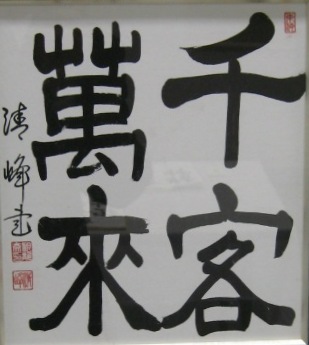 千客
萬來
清峰書